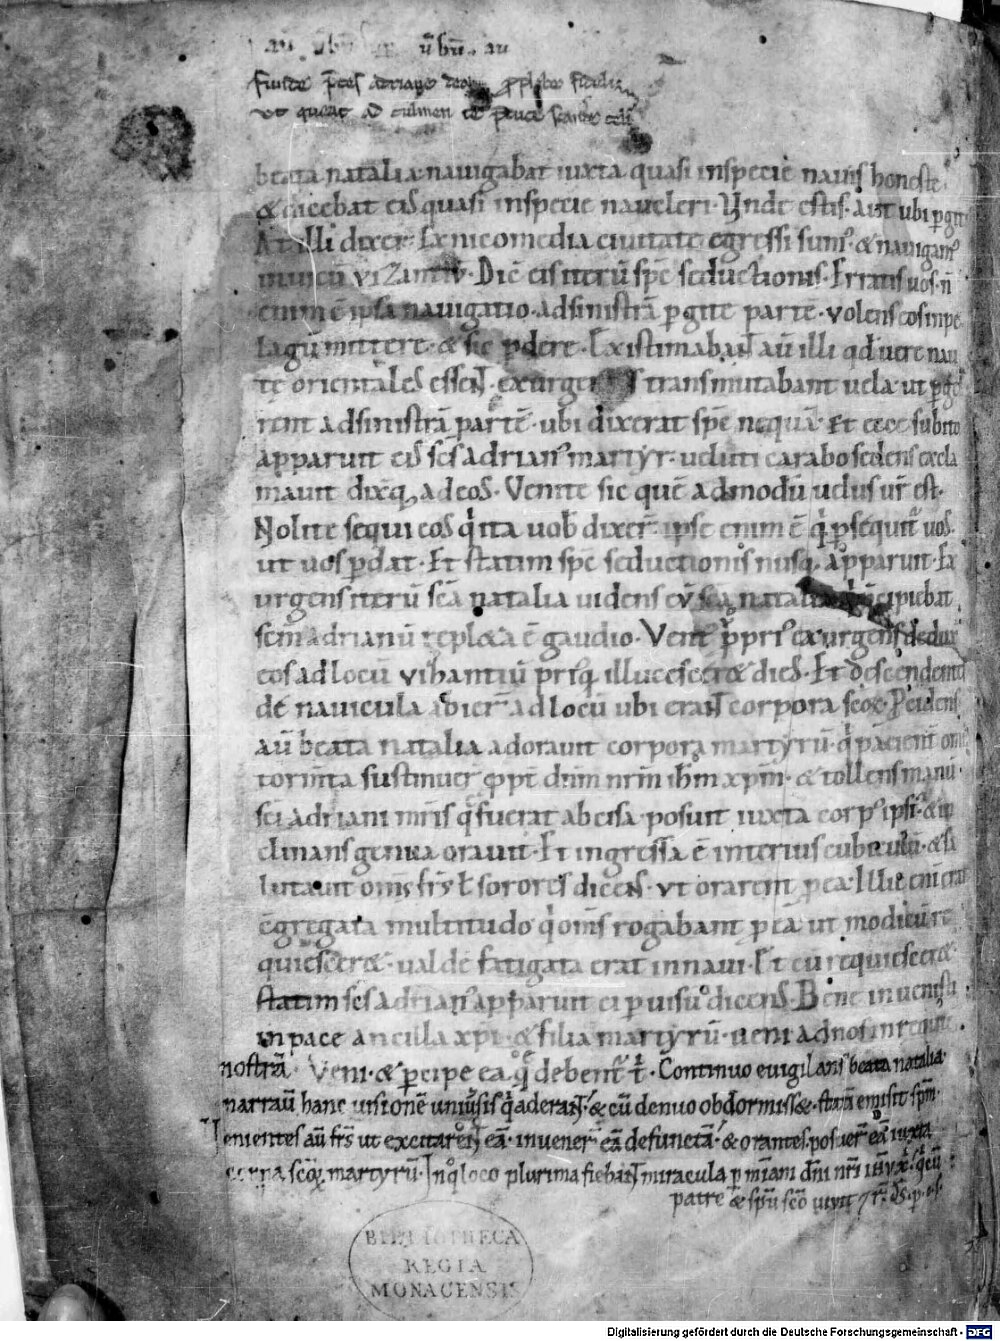 au ubū ubū au
Funde p̄ces adriane deo p̄ plebe fideli
ut queat ad culmen te p̄duce scandere celi
beata natalia nauigabat iuxta quasi inspecie nauis honeste.
& dicebat eis quasi inspecie naucleri. Unde estis. aut ubi p̱gitis
At illi dixer̄. Ex nicomedia ciuitate egressi sum᷒. & nauigam᷒
uicū vizantiū. Dic̄ eis iterū sp̄c seductionis. Erratis uos. n̄
enim ē ipsa nauigatio. adsinistrā p̱gite partē. volens eos inpe
lagū mittere. & sic p̱dere. Existimabant aū illi qđ uere nau
tę orientales essent. exurgentes transmutabant uela. ut p̱ge
rent adsinistrā partē. ubi dixerat sp̄c nequā. Et ecce subito
apparuit eis sc̄s adrian᷒ martyr. ueluti carabo sedens excla
mauit dixitq; ad eos. Venite sic quē admodū uelus ur̄ est.
Nolite sequi eos qͥ ita uob̄ dixer̄. ipse enim ē qͥ p̱sequit̄ uos.
ut uos p̱dat. Et statim sp̄c seductionis nusq̄. apparuit. Ex
urgens iterū sc̄a natalia uidens eū sc̄a natalia p̄cipiebat
sc̄m adrianū repleta ē gaudio. Vent᷒ p̄pri᷒ exurgens dedux
eos ad locū vibantiū pri᷒q̄; illucescer& dies. Et descendentes
de nauicula abier̄ ad locū ubi erant corpora sc̄oꝝ. Pcidens
aū beata natalia adorauit corpora martyrū. qͥ pacient̄ om̄ia
torm̄ta sustinuer̄ ꝓpt̄ dn̄m nr̄m ih̄m xp̄m. & tollens manū.
sc̄i adriani mr̄is q̄ fuerat abcisa. posuit iuxta corp᷒ ipsi᷒. & in
clinans genua orauit. Et ingressa ē interius cubiculū. & sa
lutauit om̄s fr̄s ł sorores dicens. ut orarent p̱ ea. Illic eni erat
c̄gregata multitudo qͥ om̄s rogabant p̱ eā ut modicū re
quiescer&. ualde fatigata erat innaui. Et cū requiescer&.
statim sc̄s adrian᷒ apparuit ei p̱ uisū dicens. Bene inuenisti
in pace ancilla xp̄i. & filia martyrū. ueni ad nos in requiē
nostrā. Veni. & p̱cipe ea. q̄ debent᷒ t̄. Continuo euigilans beata natalia.
narrauit hanc uisionē uniuersis qͥ aderant. & cū denuo obdormiss&. statī emisit sp̄m.
Uenientes aū fr̄s ut excitarent eā. inuener̄ eā defunctā. & orantes. posuer̄ eā iuxta
corpora sc̄oꝝ martyrū. In qͦ loco plurima fiebant miracula p̱ mīam dn̄i nr̄i ih̄u xp̄i. qͥ cū
patre & sp̄u sc̄o uiuit 7 r̄. ds̄. p. o. s.
BIBLIOTHECA
REGIA
MONACENSIS
Digitalisierung gefördert durch die Deutsche Forschungsgemeinschaft - DFG